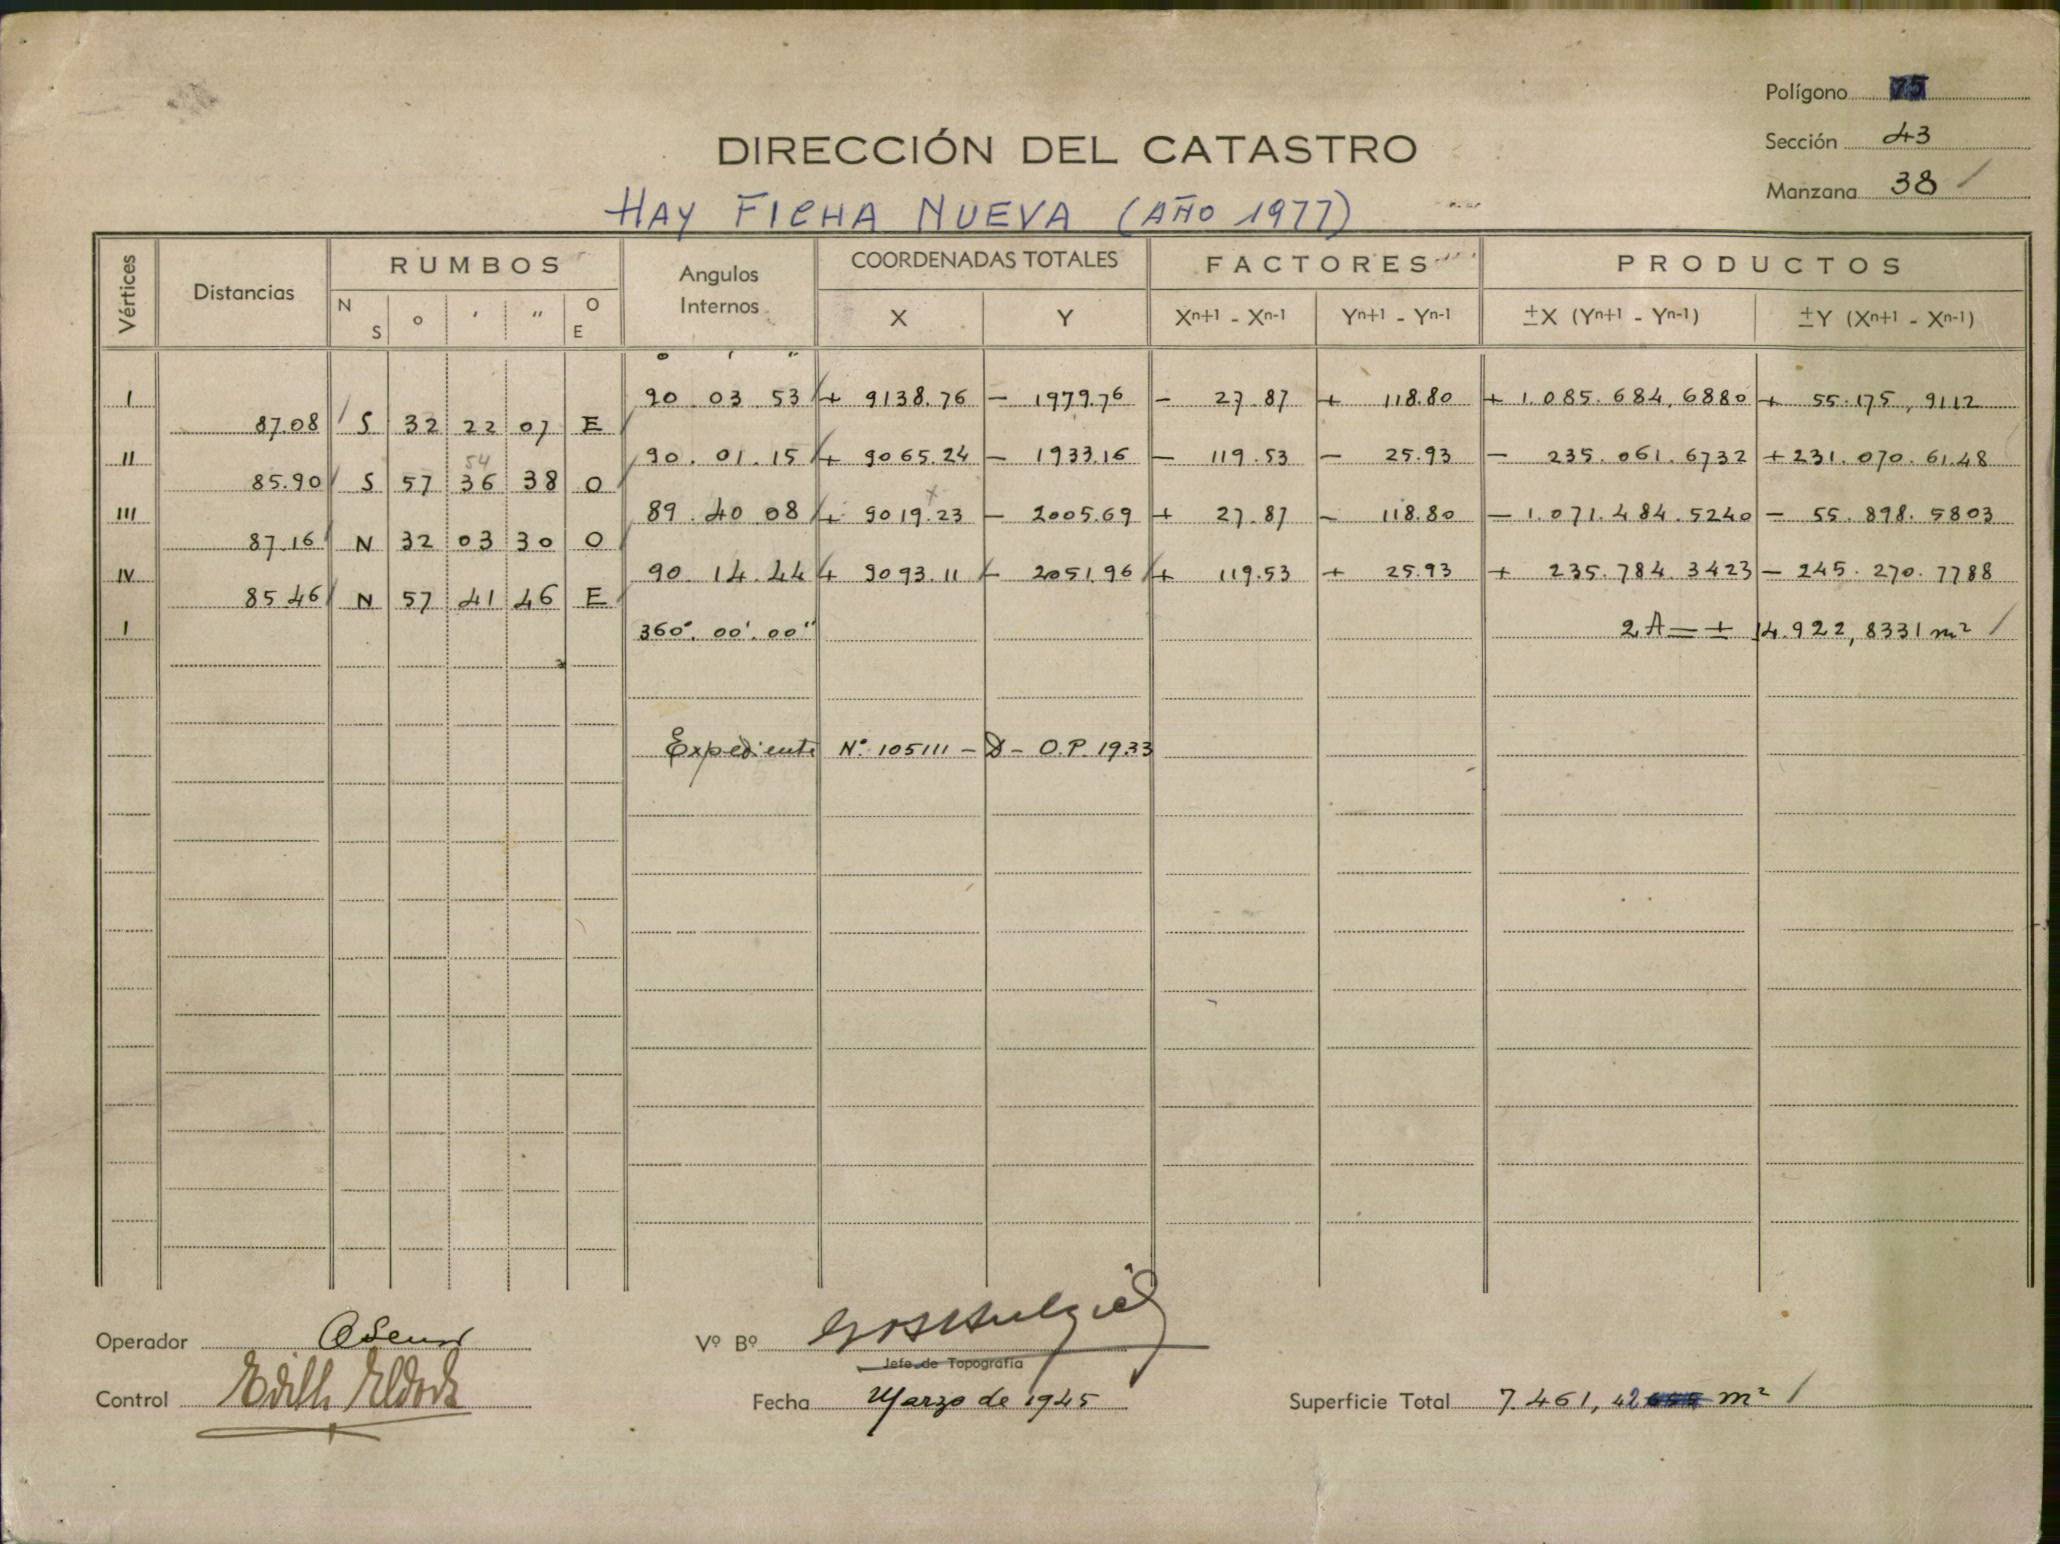 Polígono 75
DIRECCIÓN DEL CATASTRO
Sección 43
Manzana 38 /
HAY FICHA NUEVA (AÑO 1977)
Vértices Distancias RUMBOS Angulos Internos COORDENADAS TOTALES FACTORES PRODUCTOS
N S ° ' " O E X Y Xn+1 - Xn-1 Yn+1 - Yn-1 ±X (Yn+1 - Yn-1) ±Y (Xn+1 - Xn-1)
° ' "
I 90 03 53 + 9138.76 - 1979.76 - 27.87 + 118.80 + 1.085.684,6880 + 55.175,9112
87.08 S 32 22 07 E
II 90.01.15 + 9065.24 - 1933.16 - 119.53 - 25.93 - 235.061.6732 + 231.070.6148
54
85.90 S 57 36 38 O
III 89.40 08 + 9019.23 - 2005.69 + 27.87 - 118.80 - 1.071.484.5240 - 55.898.5803
87.16 N 32 03 30 O
IV 90.14.44 + 9093.11 - 2051.96 + 119.53 + 25.93 + 235.784.3423 - 245.270.7788
85 46 N 57 41 46 E
I 360°.00'.00" 2A = + 14.922,8331 m² /
Expediente N° 105111 - D - O.P. 1933
Operador
Vº Bº
Jefe de Topografía
Control
Fecha Marzo de 1945
Superficie Total 7.461,42 m² /